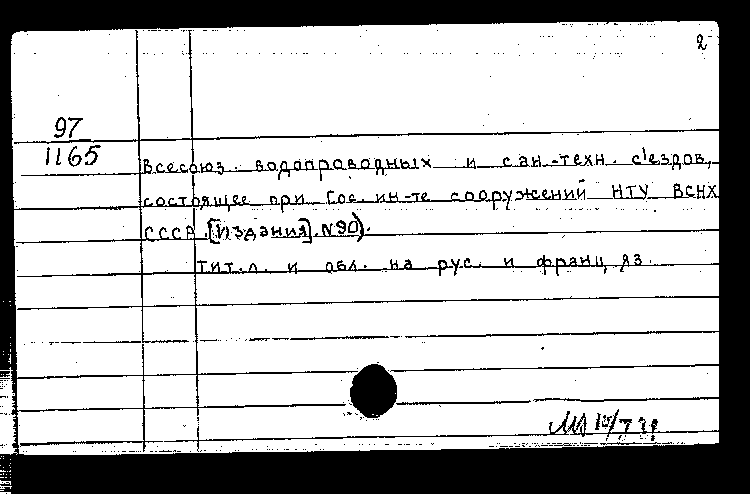 2
97
1165
Всесоюз. водопроводных и сан.-техн. с'ездов,
состоящее при Гос. ин-те сооружений НТУ ВСНХ
СССР. [Издания]. №90).
Тит. л. и обл. на рус. и франц. яз.